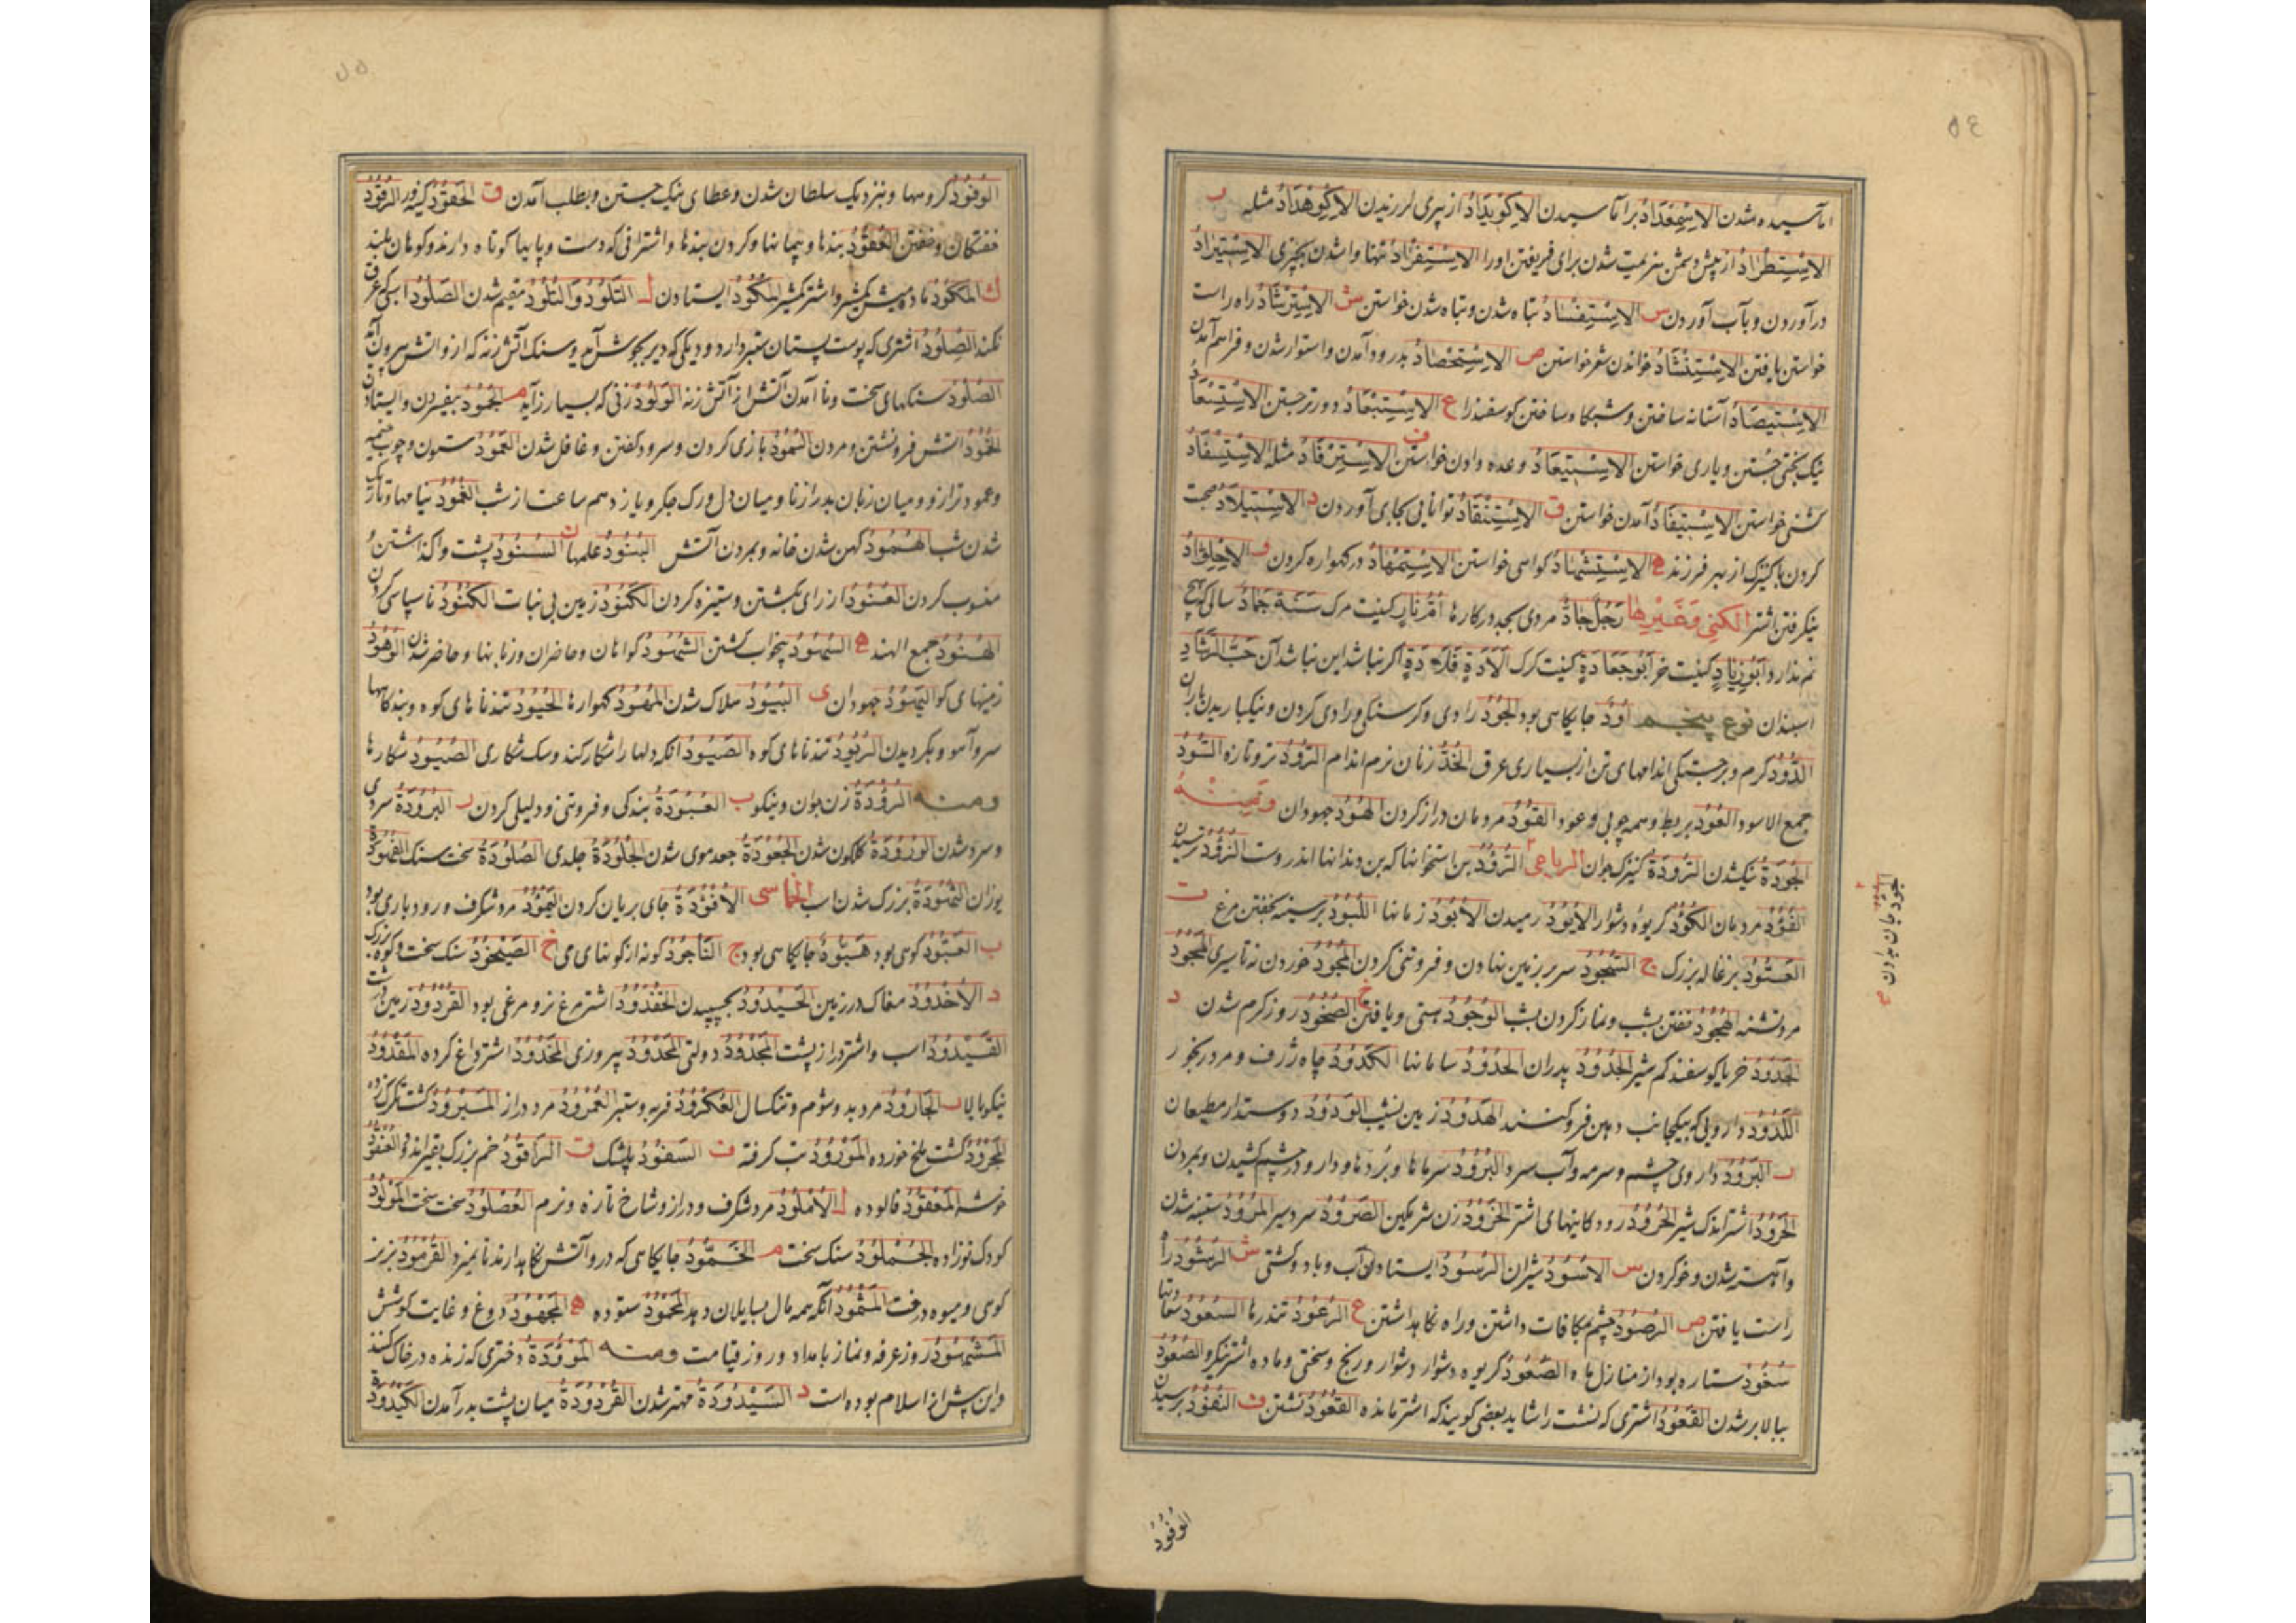 ٥٤
اماسیده شدن الاِسْمِعْدَادُ براماسیدن الاِکْوِیدَادُ از پیری لرزیدن الاِکْوِهْدَادُ مثله ب
الاِسْتِطْرَادُ از پیش دشمن بهزیمت شدن برای فریفتن او را الاِسْتِفْرَادُ تنها واشدن بچیزی الاِسْتِیرَادُ
درآوردن و بآب آوردن س الاِسْتِفْسَادُ تباه شدن و تباه شدن خواستن ش الاِسْتِرْشَادُ راه راست
خواستن یافتن الاِسْتِنْشَادُ خواندن شعر خواستن ص الاِسْتِحْصَادُ بدرو آمدن و استوار شدن و فراهم آمدن
الاِسْتِیصَادُ آستانه ساختن و شبکا ساختن گوسفند را ع الاِسْتِبْعَادُ دورتر جستن الاِسْتِسْعَادُ
نیک بختی جستن و یاری خواستن الاِسْتِیعَادُ وعده دادن خواستن ف الاِسْتِرْفَادُ مثله الاِسْتِسْفَادُ
گشنی خواستن الاِسْتِیفَادُ آمدن خواستن ق الاِسْتِنْقَادُ توانایی بجای آوردن د الاِسْتِیلَادُ صحبت
کردن با کنیزک از بهر فرزند ه الاِسْتِشْهَادُ گواهی خواستن الاِسْتِمْهَادُ در گهواره کردن و الاِجْلِوَّادُ
نیک رفتن اشتر الکنی وغیرها رَجُلٌ جَادٌّ مردی بجد در کارها کنیت مرگ سَنَةٌ جَمَادٌ سالی که هیچ
نم ندارد اَبُو زِیَادٍ کنیت خر اَبُو جَعَادَةٍ کنیت گرگ اگر نباشد این نباشد آن حَبُّ الرَّشَادِ
اسبندان نوع پنجم اُودٌ جایگاهی بود الجُودُ رادی و گرسنگی و رادی کردن و نیک باریدن باران
الدُّودُ کرم و برجستگی اندامهای تن از بسیاری عرق زنان نرم اندام تر و تازه السُّودُ
جمع الاسود العُودُ بربط و همه چوبی و عود القُودُ مردمان دراز گردن الهُودُ جهودان ومنه
الجُودَةُ نیک شدن الرُّودَةُ کنیزک جوان الرباعی بن استخوانها که بن دندانها اندروست
مردمان الکَؤُدُ کریوه دشوار الاُبُودُ رمیدن الاُبُودُ زمانها اللُّبُودُ بر سینه بخفتن مرغ ت
العَتُودُ بزغاله بزرگ ج السُّجُودُ سر بر زمین نهادن و فروتنی کردن المُجُودُ خوردن نه تا سیری المَجُودُ
مرد تشنه الهُجُودُ خفتن بشب و نماز کردن بشب الوُجُودُ هستی و یافتن خ الصَّخُودُ روز گرم شدن د
الجَدُودُ خر یا گوسفند کم شیر الجُدُودُ پدران الحُدُودُ سامانها الکَدُودُ چاه ژرف و مرد رنجور
اللَّدُودُ دارویی که بیکجانب دهن فرو کنند الهَدُودُ زمین نشیب الوَدُودُ دوستدار مطیعان
ر البَرُودُ داروی چشم و سرمه و آب سرد البُرُودُ سرماها و بردها و دارو در چشم کشیدن و بمردن
الحَرُودُ اشتر اندک شیر الحُرُودُ رودگانیهای اشتر الخَرُودُ زن شرمگین الصُّرُودُ سردسیر المُرُودُ ستنبه شدن
و آهسته شدن و خو کردن س الاُسُودُ شیران الرُّسُودُ ایستادن آب و باد و کشتی ش الرُّشُودُ راه
راست یافتن ص الرُّصُودُ چشم بمکافات داشتن و راه نگاه داشتن ع الرُّعُودُ تندرها السُّعُودُ
سُعُودٌ ستاره بود از منازل ماه الصَّعُودُ کریوه دشوار دشوار و رنج و سختی و ماده اشتر الصُّعُودُ
ببالا برشدن القَعُودُ اشتری که نشست را شاید بعضی گویند که اشتر مانده القُعُودُ نشستن ف النُّفُودُ برسیدن
الجُؤُودُ جان بدادن صح
الوُفُودُ
٥٥
الوُفُودُ گروهها و بنزدیک سلطان شدن و عطای نیک جستن و بطلب آمدن ق الحَقُودُ کینه ور الرُّقُودُ
خفتگان و خفتن العُقُودُ بندها و پیمانها و کردن بندها و اشترانی که دست و پایها کوتاه دارند و کوهان بلند
ك المَکُودُ ماده میش کم شیر و اشتر کم شیر المُکُودُ ایستادن ل التُّلُودُ وَالتُّلُودُ مقیم شدن الصَّلُودُ اسبی که عرق
نکند الصَّلُودُ اشتری که پوست پستان ستبر دارد و دیگی که دیر بجوش آید و سنگ آتش زنه که ازو آتش بیرون آید
الصُّلُودُ سنگهای سخت و ناآمدن آتش از آتش زنه الوَلُودُ زنی که بسیار زاید م الجُمُودُ بیفسردن و ایستادن
الخُمُودُ آتش فرو نشستن و مردن السُّمُودُ بازی کردن و سرود گفتن و غافل شدن العَمُودُ ستون و چوب خیمه
و عمود ترازو و میان زبان بدرازنا و میان دل و رگ جگر و یازدهم ساعت از شب الغُمُودُ نیامها و تاریک
شدن شب الهُمُودُ کهن شدن خانه و بمردن آتش البُنُودُ علمها ن السُّنُودُ پشت واگذاشتن و
منسوب کردن العُنُودُ از رای بگشتن و ستیزه کردن الکَنُودُ زمین بی نبات الکُنُودُ ناسپاسی کردن
الهُنُودُ جمع الهند ه السُّهُودُ بیخواب گشتن الشُّهُودُ گواهان و حاضران و زبانها و حاضر شدن الوُهُودُ
زمینهای گو الیَهُودُ جهودان ی البُیُودُ هلاک شدن المُهُودُ گهوارها الحُیُودُ تندناهای کوه و بندگاهها
سر و آهو و بگردیدن الرُّیُودُ تندناهای کوه الصَّیُودُ آنکه دلها را شکار کند و سگ شکاری الصُّیُودُ شکارها
ومنه الرُّؤُدَةُ زن جوان و نیکو ب العُبُودَةُ بندگی و فروتنی و دلیلی کردن ر البُرُودَةُ سردی
و سرد شدن الوُرُودَةُ گلگون شدن الجُعُودَةُ جعد موی شدن الجُلُودَةُ جلدی الصُّلُودَةُ سخت سنگ
یوزان النُّهُودَةُ بزرگ شدن اسب الخماسی الاُفْؤُودَةُ جای بریان کردن الیَمْؤُودُ مرد شگرف و رودباری بود
ب العَبُّودُ کوهی بود هَبُّودٌ جایگاهی بود ج النَّاجُودُ گونه از گونهای می خ الصَّیْخُودُ سنگ سخت و کوه بزرگ
د الاُخْدُودُ مغاک در زمین الحَیْدُودُ بچسپیدن الخُفْدُودُ اشترمرغ نر و مرغی بود القُرْدُودُ زمین درشت
القَیْدُودُ اسب و اشتر دراز پشت المَجْدُودُ دولتی المَحْدُودُ بی روزی المَخْدُودُ اشتر داغ کرده المَقْدُودُ
نیکوبالا ر الجَارُودُ مرد بد و شوم و تنگسال العُکْرُودُ فربه و ستبر العُمْرُودُ مرد دراز المَبْرُودُ کشت تگرگ زده
المَجْرُودُ کشت ملخ خورده المَوْرُودُ تب گرفته ف السَّفُّودُ پلشک ق الرَّاقُودُ خم بزرگ بقیر اندوده العُنْقُودُ
خوشه المَعْقُودُ فالوده ل الاُمْلُودُ مرد شگرف و دراز و شاخ تازه و نرم العُصْلُودُ سخت سخت المَوْلُودُ
کودک نوزاده الجُلْمُودُ سنگ سخت م الخَمُّودُ جایگاهی که درو آتش نگاه دارند تا بمیرد القُرْمُودُ بز نر
کوهی و میوه درخت المَثْمُودُ آنکه همه مال بسایلان دهد المَحْمُودُ ستوده ه المَجْهُودُ دوغ و غایت کوشش
المَشْهُودُ روز عرفه و نماز بامداد و روز قیامت ومنه المَوْؤُودَةُ دختری که زنده در خاک کنند
و این پیش از اسلام بوده است د السَّیْدُودَةُ مهتر شدن القُرْدُودَةُ میان پشت بدر آمدن الکَیْدُودَةُ